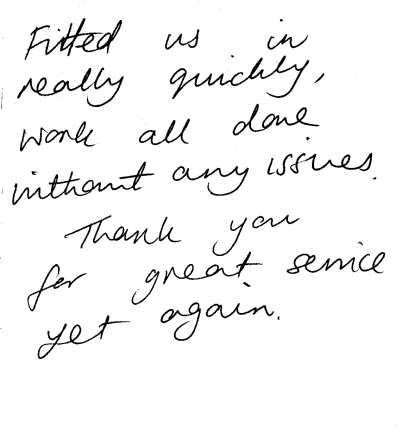 Fitted us in
really quickly,
work all done
without any issues.
Thank you
for great service
yet again.